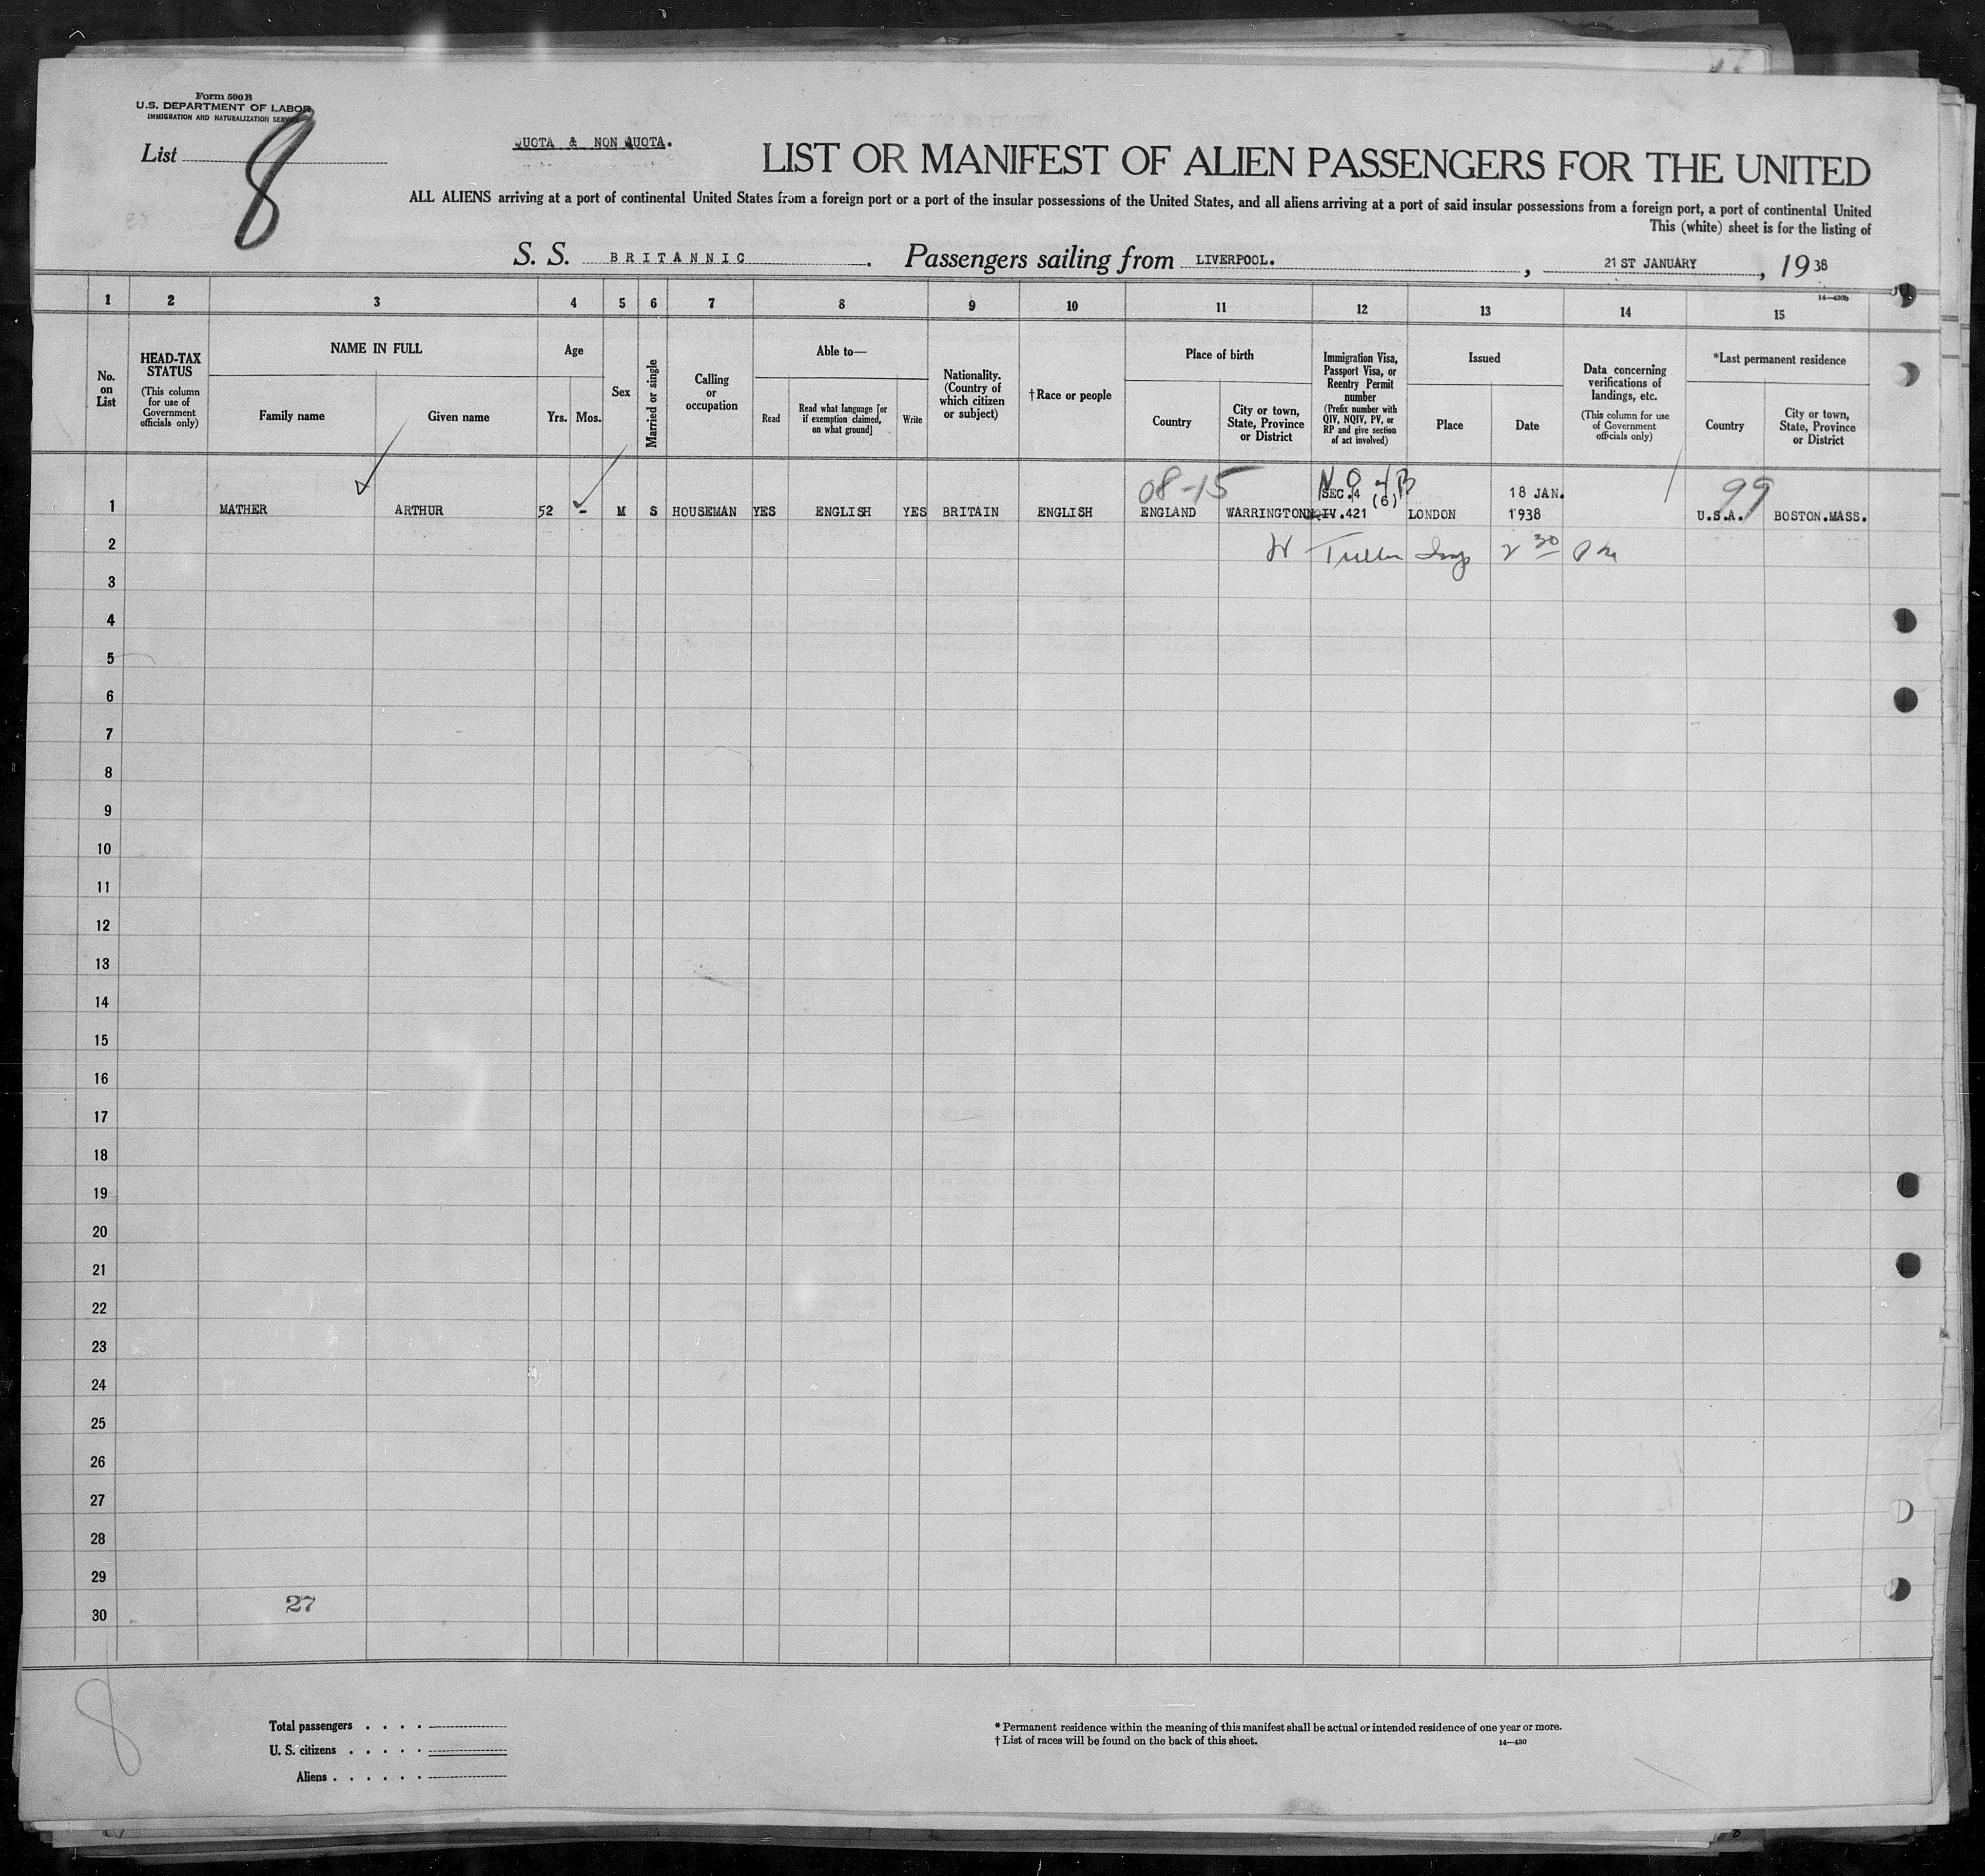 Form 500 B
U.S. DEPARTMENT OF LABOR
IMMIGRATION AND NATURALIZATION SERVICE
List 8
QUOTA & NON QUOTA.
LIST OR MANIFEST OF ALIEN PASSENGERS FOR THE UNITED
ALL ALIENS arriving at a port of continental United States from a foreign port or a port of the insular possessions of the United States, and all aliens arriving at a port of said insular possessions from a foreign port, a port of continental United
This (white) sheet is for the listing of
S. S. BRITANNIC. Passengers sailing from LIVERPOOL., 21ST JANUARY, 1938
14—430b
1 2 3 4 5 6 7 8 9 10 11 12 13 14 15
No. on List
HEAD-TAX STATUS
(This column for use of Government officials only)
NAME IN FULL
Family name
Given name
Age
Yrs. Mos.
Sex
Married or single
Calling or occupation
Able to—
Read
Read what language [or if exemption claimed, on what ground]
Write
Nationality. (Country of which citizen or subject)
†Race or people
Place of birth
Country
City or town, State, Province or District
Immigration Visa, Passport Visa, or Reentry Permit number
(Prefix number with QIV, NQIV, PV, or RP and give section of act involved)
Issued
Place
Date
Data concerning verifications of landings, etc.
(This column for use of Government officials only)
*Last permanent residence
Country
City or town, State, Province or District
08-15 SEC.4 (6) 18 JAN. 99
1 MATHER ARTHUR 52 - M S HOUSEMAN YES ENGLISH YES BRITAIN ENGLISH ENGLAND WARRINGTON NQIV.421 LONDON 1938 U.S.A. BOSTON.MASS.
2 2 30
3
4
5
6
7
8
9
10
11
12
13
14
15
16
17
18
19
20
21
22
23
24
25
26
27
28
29
27
30
8
Total passengers . . . .
U. S. citizens . . . . .
Aliens . . . . . .
* Permanent residence within the meaning of this manifest shall be actual or intended residence of one year or more.
† List of races will be found on the back of this sheet.
14—430